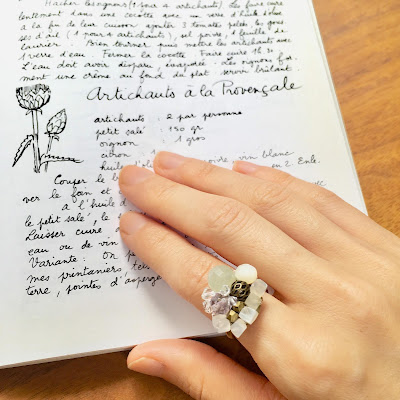 Hacher les oignons (1 pour 4 artichauts). Les faire cuire
lentement dans une cocotte avec un verre d'huile d'olive
à la fin de leur cuisson ajouter 3 tomates pelées, les gous
ses d'ail (1 pour 4 artichauts), sel poivre, 1 feuille de
laurier. Bien tourner puis mettre les artichauts avec
1 verre d'eau. Fermer la cocotte. Faire cuire 1h ½
L'eau doit avoir disparu évaporée. Les oignons for
ment une crème au fond du plat servir brûlant.
Artichauts à la Provençale
artichauts : 2 par personne
petit salé : 150 gr
oignon : 1 gros
citron
huile d'olive poivre, vin blanc
Couper le en 2. Enle
ver le foin et avec
à l'huile d
le petit salé, le
Laisser cuire
eau ou de vin
Variante : On p
mes printaniers tel
terre, pointes d'asperge